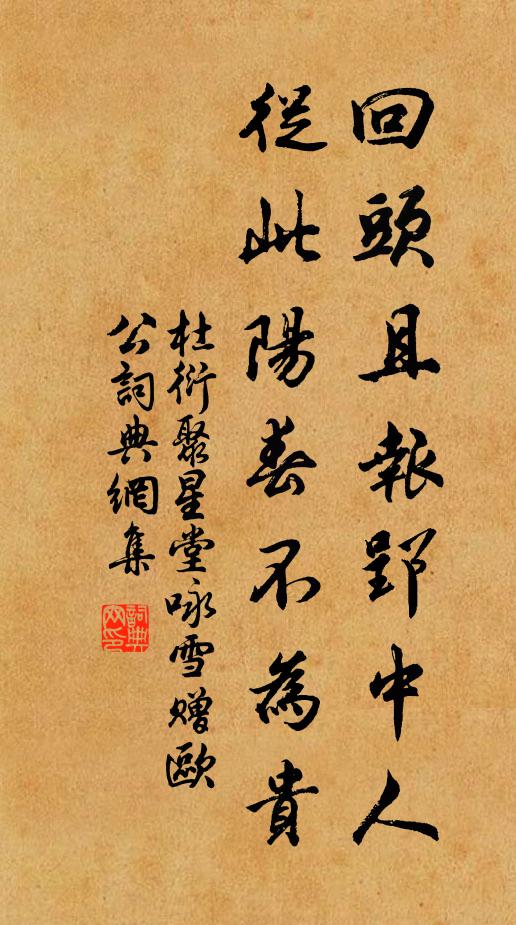 回頭且報郢中人
從此陽春不為貴
杜衍聚星堂咏雪赠歐
公詞典網集
詞典网印